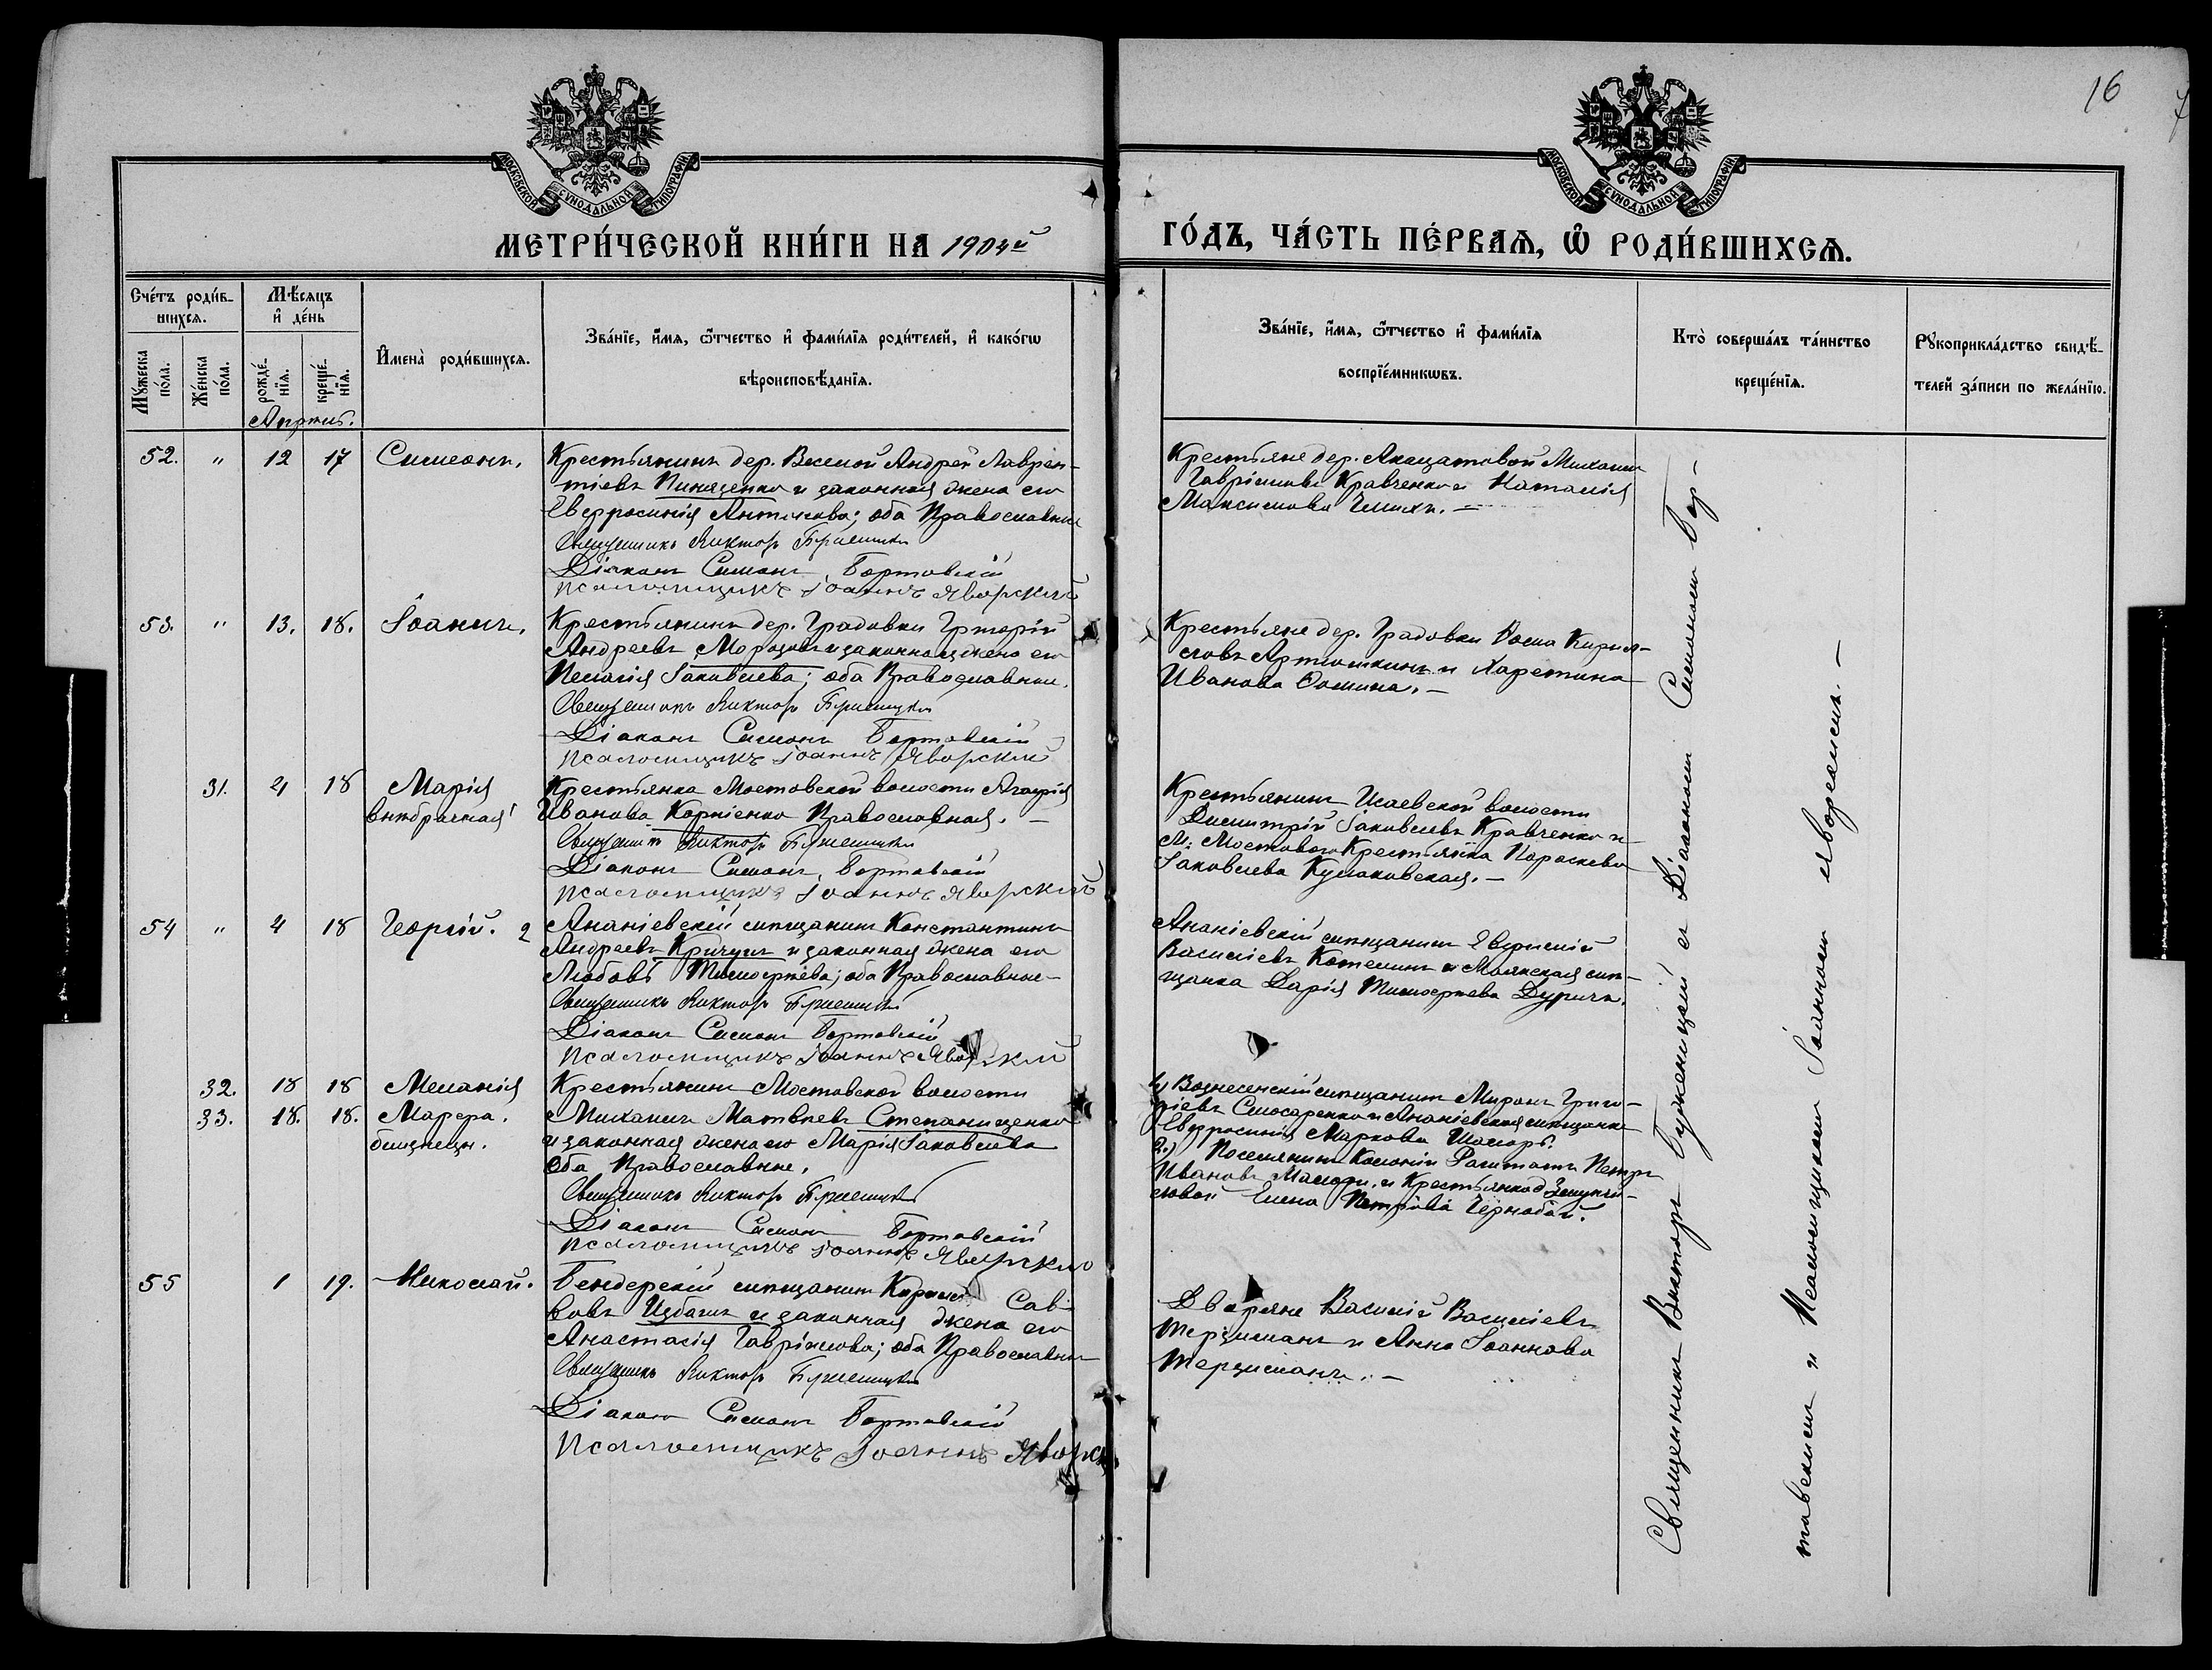 16
7
МОСКОВСКОЙ СѴНОДАЛЬНОЙ ТИПОГРАФІИ
МОСКОВСКОЙ СѴНОДАЛЬНОЙ ТИПОГРАФІИ
МЕТРИ́ЧЕСКОЙ КНИ́ГИ НА 1904й
ГО́ДЪ, ЧА́СТЬ ПЕ́РВАѦ, Ѽ РОДИ́ВШИХСѦ.
Сче́тъ роди́в-
шихсѧ.
Мꙋжеска по́ла.
Же́нска по́ла.
Мѣ́сяцъ и҆ де́нь
рожде́-нїѧ.
креще́-нїѧ.
Апрель.
И҆мена̀ роди́вшихсѧ.
Зва́нїе, и҆́мѧ, ѻ҆́тчество и҆ фами́лїѧ роди́телей, и҆ како́гѡ
вѣроисповѣ́данїѧ.
Зва́нїе, и҆́мѧ, ѻ҆́тчество и҆ фами́лїѧ
воспрїе́мникѡвъ.
Кто̀ соверша́лъ та́инство
креще́нїѧ.
Рꙋкоприкла́дство свидѣ́-
телей за́писи по жела́нїю.
52. " 12 17 Симеонъ.
Крестьянинъ дер. Андрей Лаврен-
тіевъ и законная жена его
Евфросинія; оба Православные
Священникъ Викторъ
Діаконъ Симеонъ Бортовскій
Псаломщикъ Іоаннъ Яворскій
Крестьяне дер. Михаилъ
Гавріиловъ Кравченко и Наталія
Максимова
53. " 13. 18. Іоаннъ.
Крестьянинъ дер. Градовки Григорій
Андреевъ Морозовъ и законная жена его
Пелагія Іаковлева; оба Православные.
Священникъ Викторъ
Діаконъ Симеонъ Бортовскій
Псаломщикъ Іоаннъ Яворскій
Крестьяне дер. Градовки Кирил-
ловъ Артюшкинъ и Харетина
Иванова Ѳомина. –
31. 4 18 Марія
внѣбрачная
Крестьянка Мостовской волости Агафія
Иванова Корніенко Православная. –
Священникъ Викторъ
Діаконъ Симеонъ Бортовскій
Псаломщикъ Іоаннъ Яворскій
Крестьянинъ Исаевской волости
Димитрій Іаковлевъ Кравченко и
М. Мостового Крестьянка Параскева
Іаковлева Кулаковская. –
54 " 4 18 Георгій. 2
Ананіевскій мѣщанинъ Константинъ
Андреевъ Кричунъ и законная жена его
Любовь Тимофеева; оба Православные –
Священникъ Викторъ
Діаконъ Симеонъ Бортовскій
Псаломщикъ Іоаннъ Яворскій
Ананіевскій мѣщанинъ Евфимій
Василіевъ Котелинъ и Маякская мѣ-
щанка Дарія Тимофеева
32. 18 18 Меланія
33. 18. 18. Марфа.
близнецы.
Крестьянинъ Мостовской волости
Михаилъ Матвѣевъ Степанищенко
и законная жена его Марія Іаковлева
оба Православные.
Священникъ Викторъ
Діаконъ Симеонъ Бортовскій
Псаломщикъ Іоаннъ Яворскій
1) Вознесенскій мѣщанинъ Миронъ Григо-
ріевъ Слюсаренко и Ананіевская мѣщанка
Евфросинія Маркова
2.) Поселянинъ Колоніи Раштатъ Петръ
Ивановъ и Крестьянка д.
Елена Петрова Чернобай.
55 1 19. Николай.
Бендерскій мѣщанинъ Кириллъ Сав-
вовъ Избашъ и законная жена его
Анастасія Гавріилова; оба Православные
Священникъ Викторъ
Діаконъ Симеонъ Бортовскій
Псаломщикъ Іоаннъ Яворск
Дворяне Василій Василіевъ
Терзиманъ и Анна Іоаннова
Терзиманъ. –
Священникъ Викторъ съ Діакономъ Симеономъ Бор-
товскимъ и Псаломщикомъ Іоанномъ Яворскимъ. –